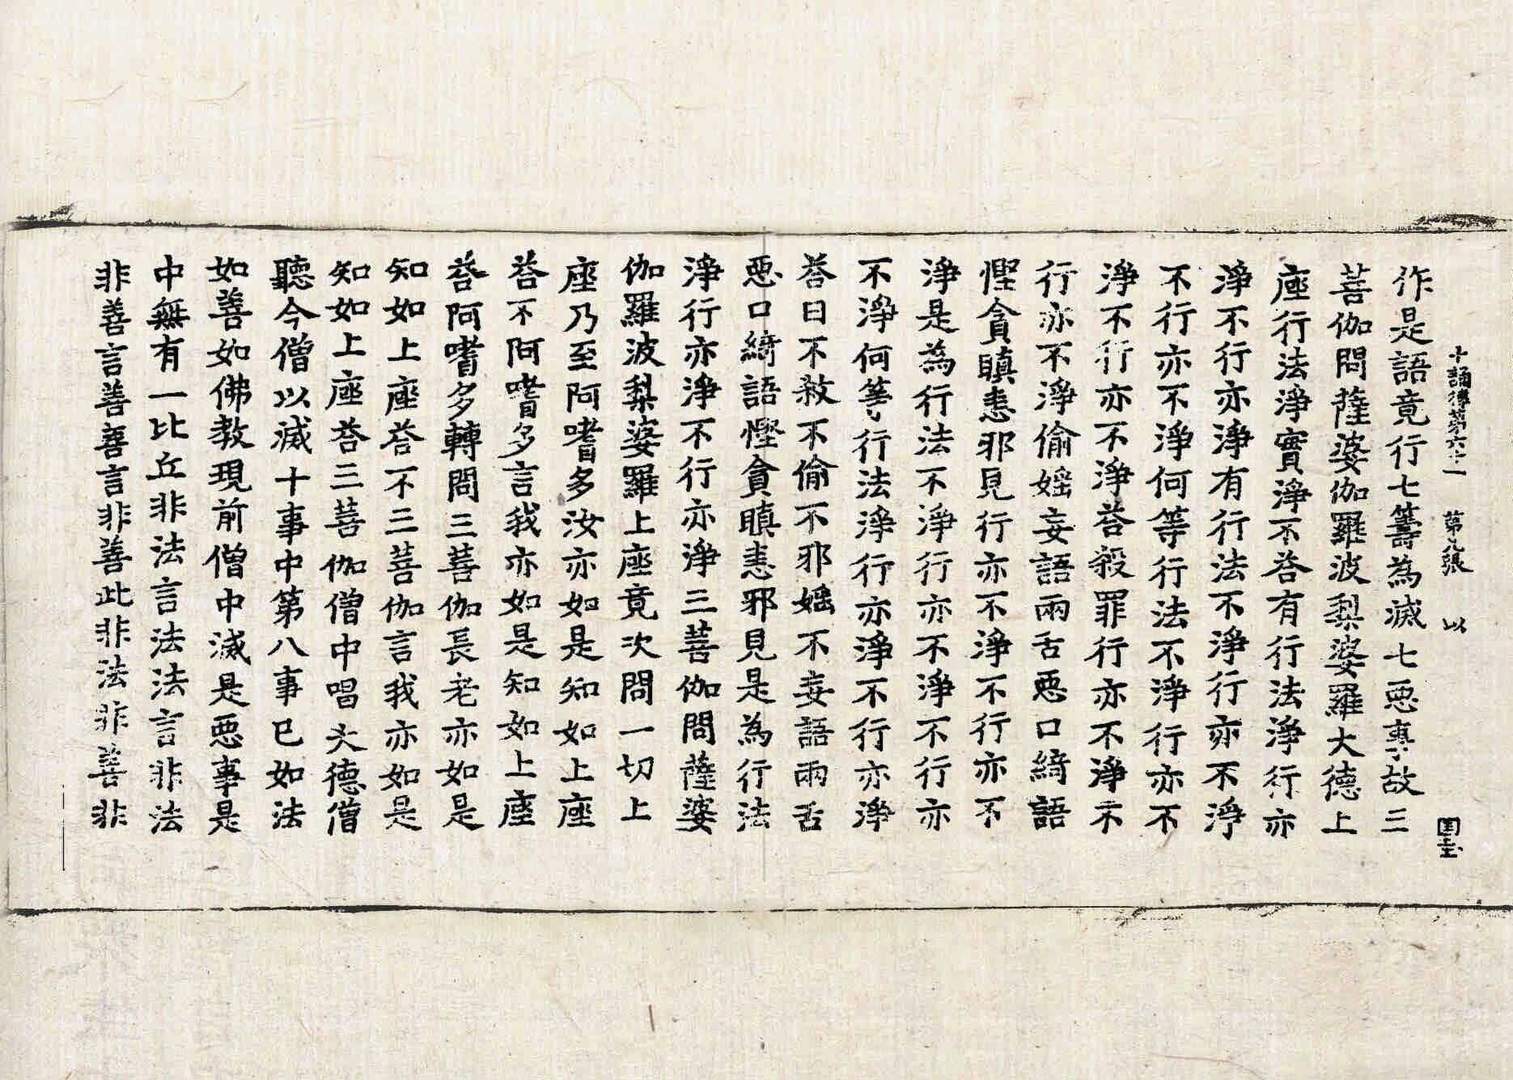 十誦律第六十一 第 張 以
作是語竟行七籌為滅七惡事故三
菩伽問薩婆伽羅波梨婆羅大德上
座行法淨實淨不荅有行法淨行亦
淨不行亦淨有行法不淨行亦不淨
不行亦不淨何等行法不淨行亦不
淨不行亦不淨荅殺罪行亦不淨不
行亦不淨偷婬妄語兩舌惡口綺語
慳貪瞋恚邪見行亦不淨不行亦不
淨是為行法不淨行亦不淨不行亦
不淨何等行法淨行亦淨不行亦淨
荅曰不殺不偷不邪婬不妄語兩舌
惡口綺語慳貪瞋恚邪見是為行法
淨行亦淨不行亦淨三菩伽問薩婆
伽羅波梨婆羅上座竟次問一切上
座乃至阿嗜多汝亦如是知如上座
荅不阿嗜多言我亦如是知如上座
荅阿嗜多轉問三菩伽長老亦如是
知如上座荅不三菩伽言我亦如是
知如上座荅三菩伽僧中唱大德僧
聽今僧以滅十事中第八事已如法
如善如佛教現前僧中滅是惡事是
中無有一比丘非法言法法言非法
非善言善善言非善此非法非善非